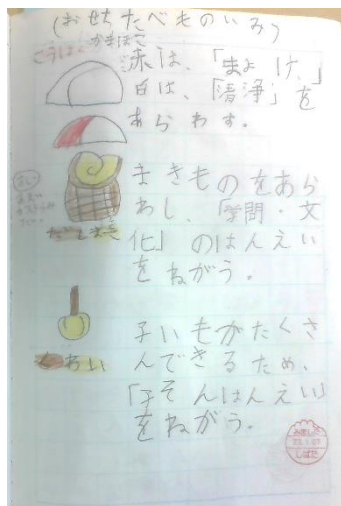 (おせちたべものいみ)
こうはく
かまぼこ
赤は、「まよけ、」
白は、「清浄」を
あらわす。
まきものをあら
わし、「学問・文
化」のはんえい
をねがう。
だしまき
子いもがたくさ
んできるため、
「子そんはんえい」
をねがう。
みました
しばた